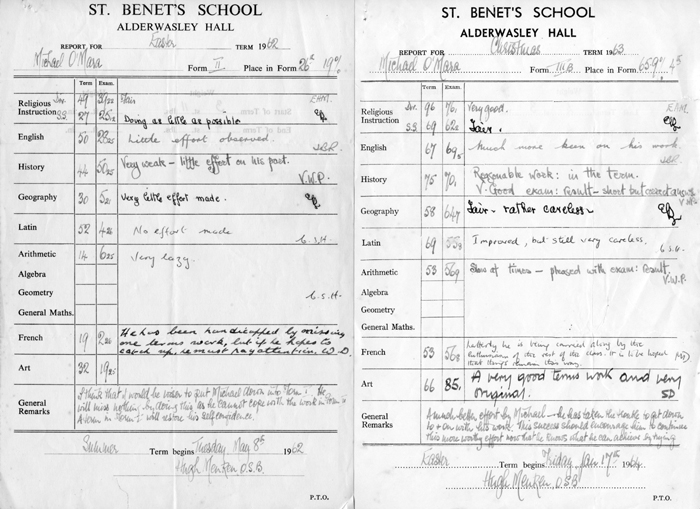 ST. BENET'S SCHOOL
ALDERWASLEY HALL
REPORT FOR Easter TERM 1962
Michael O'Mara Form II Place in Form 26th
Term Exam.
Religious Instruction Jnr. 49 Fair
S.S. 27 Doing as little as possible
English 50 Little effort observed.
History 44 Very weak - little effort on his part.
V.W.P.
Geography 30 Very little effort made.
Latin 52 No effort made
C.S.H.
Arithmetic 14 Very lazy.
Algebra
Geometry
C.S.H.
General Maths.
French 19 He has been handicapped by missing
one terms work, but if he hopes to
catch up, he must pay attention. W.D.
Art 32
General Remarks I think that it would be wiser to put Michael down into Form I. He
will miss nothing by doing this as he cannot cope with the work in Form II
A term in Form I will restore his self confidence.
Summer Term begins Tuesday May 8th 1962
Hugh Menken O.S.B.
P.T.O.
ST. BENET'S SCHOOL
ALDERWASLEY HALL
REPORT FOR Christmas TERM 1963
Michael O'Mara Form IIIB Place in Form
Term Exam.
Religious Instruction 96 Very good.
S.S. 69 Fair.
English 67 69 Much more keen on his work.
History 75 Reasonable work: in the term.
V. Good exam: result - short but accurate answers
V.W.P.
Geography 58 64 Fair - rather careless
Latin 69 Improved, but still very careless.
C.S.H.
Arithmetic 53 56 Slow at times - pleased with exam: result.
V.W.P.
Algebra
Geometry
General Maths.
French 53 56 Latterly he is being carried along by the
enthusiasm of the rest of the class. It is to be hoped
that things remain this way.
Art 66 85 A very good terms work and very
original. SD
General Remarks A much better effort by Michael - he has taken the trouble to get down
to & on with his work. This success should encourage him to continue
this more worthy effort now that he knows what he can achieve by trying
Easter Term begins Friday Jan. 17th 1964
Hugh Menken O.S.B.
P.T.O.